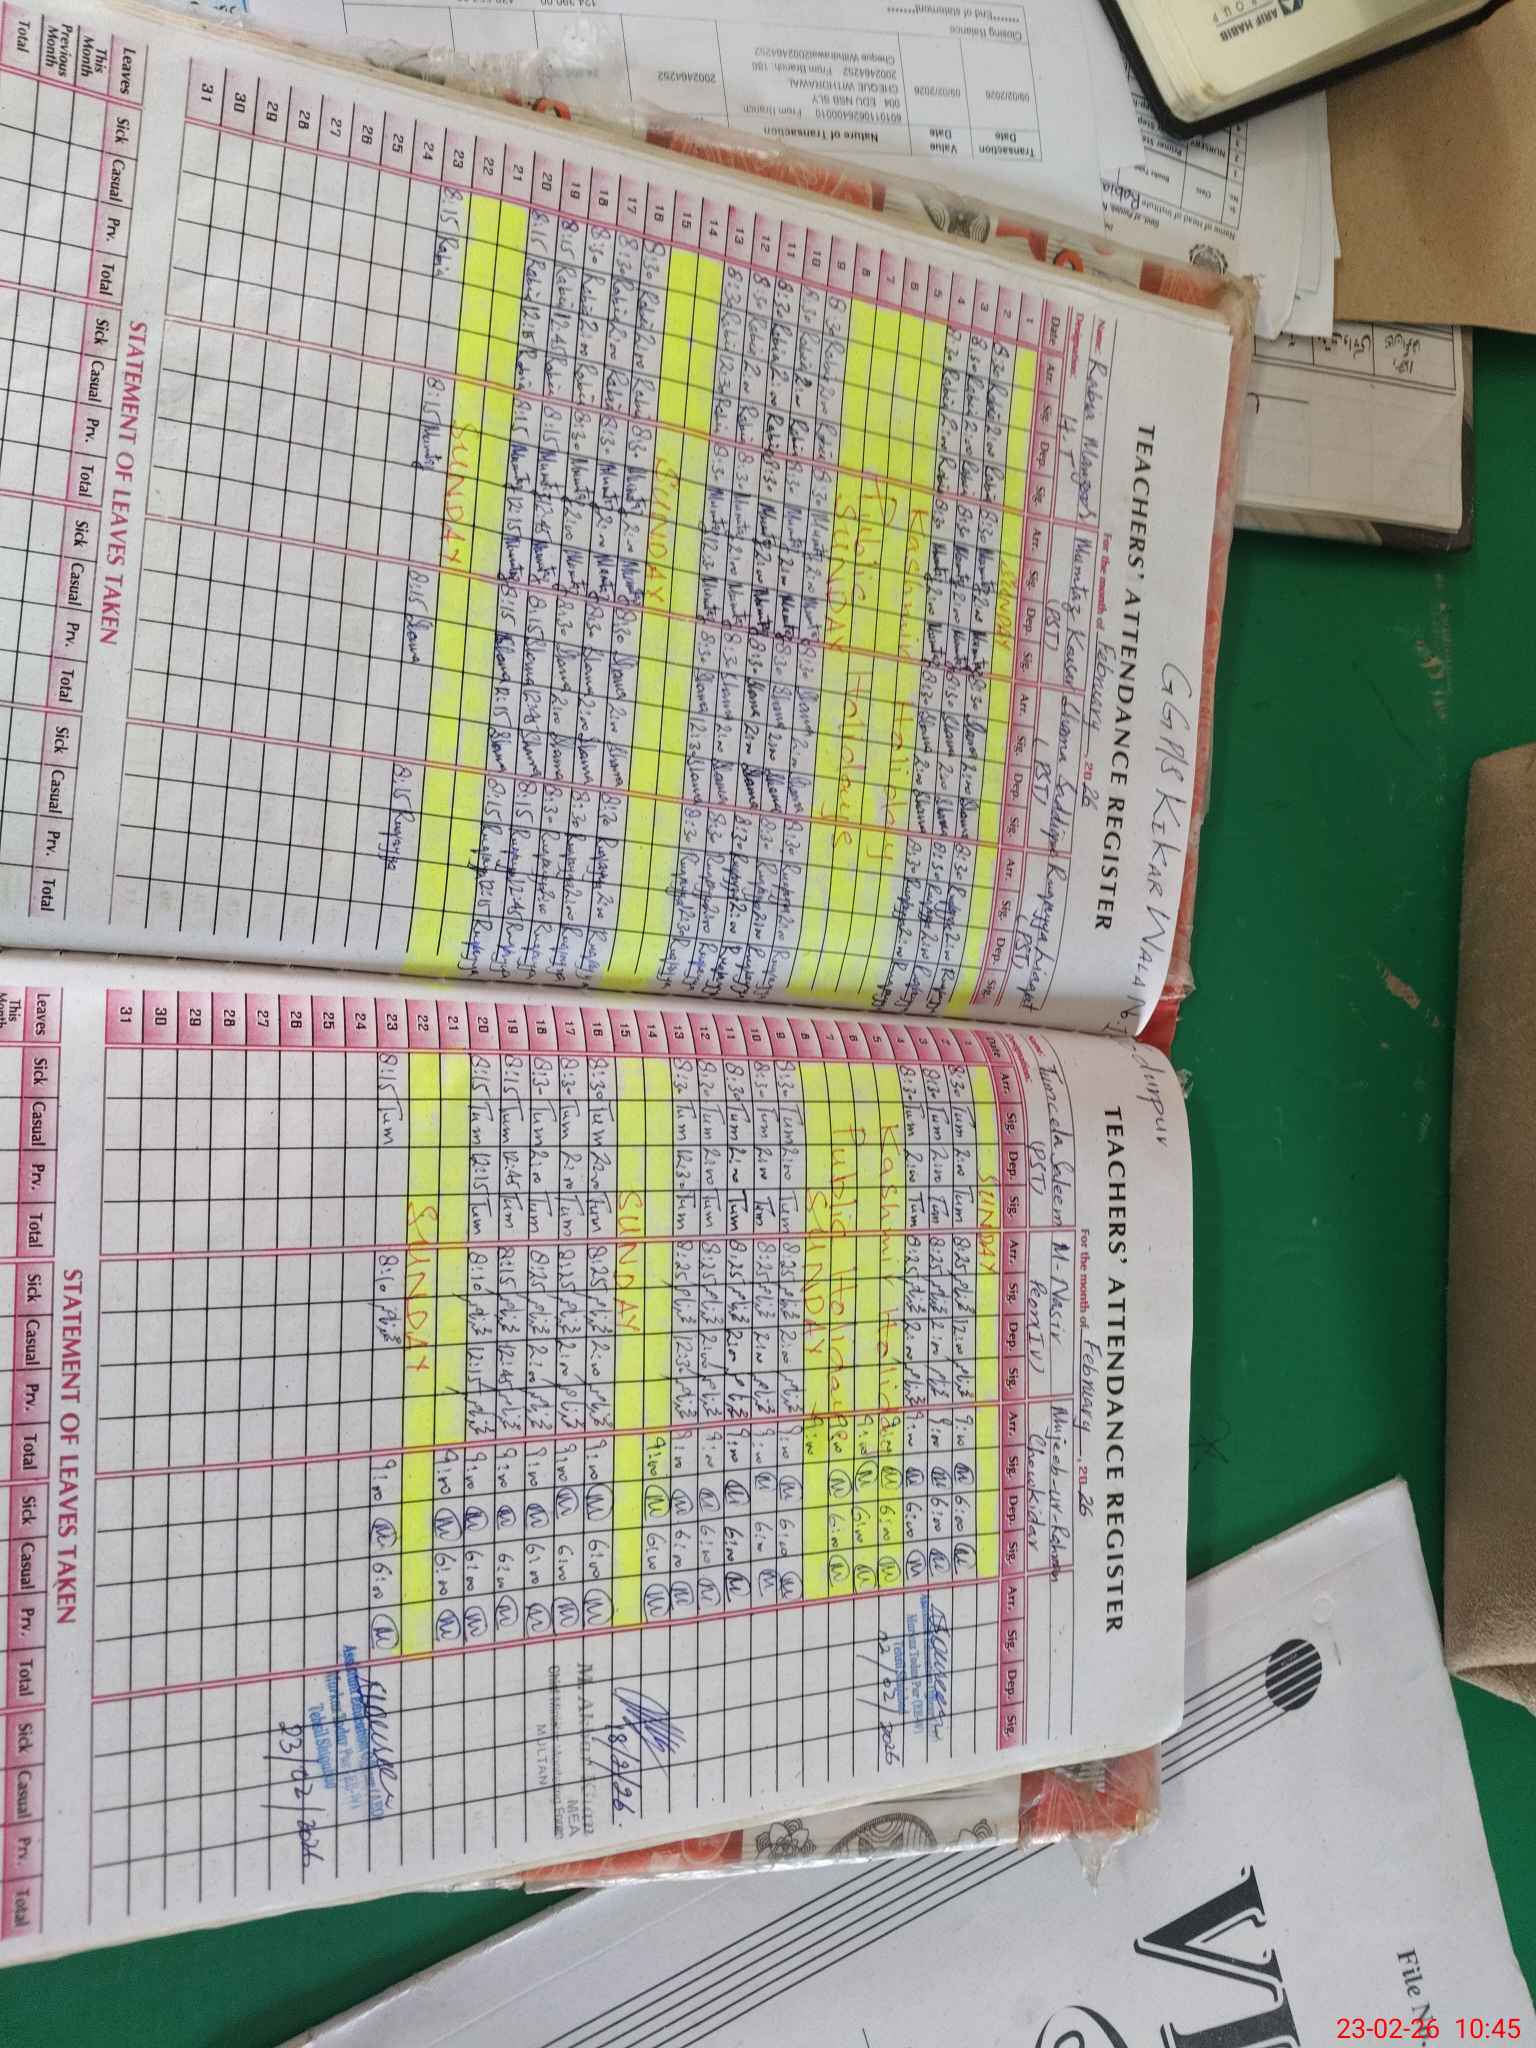 GGP/S KIKAR WALA N.
TEACHERS' ATTENDANCE REGISTER
For the month of February, 2026
Name: Rabia Manzoor Mumtaz Kausar Shama Saddique Ruqayya Liaqat
Designation: H.T (PST) (PST) (PST)
Date Arr. Sig. Dep. Sig. Arr. Sig. Dep. Sig. Arr. Sig. Dep. Sig. Arr. Sig. Dep. Sig.
1 SUNDAY
2 8:30 Rabia 2:00 Rabia 8:30 Mumtaz 2:00 Mumtaz 8:30 Shama 2:00 Shama 8:30 Ruqayya 2:00 Ruqayya
3 8:30 Rabia 2:00 Rabia 8:30 Mumtaz 2:00 Mumtaz 8:30 Shama 2:00 Shama 8:30 Ruqayya 2:00 Ruqayya
4 8:30 Rabia 2:00 Rabia 8:30 Mumtaz 2:00 Mumtaz 8:30 Shama 2:00 Shama 8:30 Ruqayya 2:00 Ruqayya
5 Kashmir Holiday
6 Public Holidays
7
8 SUNDAY
9 8:30 Rabia 2:00 Rabia 8:30 Mumtaz 2:00 Mumtaz 8:30 Shama 2:00 Shama 8:30 Ruqayya 2:00 Ruqayya
10 8:30 Rabia 2:00 Rabia 8:30 Mumtaz 2:00 Mumtaz 8:30 Shama 2:00 Shama 8:30 Ruqayya 2:00 Ruqayya
11 8:30 Rabia 2:00 Rabia 8:30 Mumtaz 2:00 Mumtaz 8:30 Shama 2:00 Shama 8:30 Ruqayya 2:00
12 8:30 Rabia 2:00 Rabia 8:30 Mumtaz 2:00 Mumtaz 8:30 Shama 2:00 Shama 8:30 Ruqayya 2:00 Ruqayya
13 8:30 Rabia 12:30 Rabia 8:30 Mumtaz 12:30 Mumtaz 8:30 Shama 12:30 Shama 8:30 Ruqayya 12:30 Ruqayya
14
15 SUNDAY
16 8:30 Rabia 2:00 Rabia 8:30 Mumtaz 2:00 Mumtaz 8:30 Shama 2:00 Shama 8:30 Ruqayya 2:00 Ruqayya
17 8:30 Rabia 2:00 Rabia 8:30 Mumtaz 2:00 Mumtaz 8:30 Shama 2:00 Shama 8:30 Ruqayya 2:00 Ruqayya
18 8:30 Rabia 2:00 Rabia 8:30 Mumtaz 2:00 Mumtaz 8:30 Shama 2:00 Shama 8:30 Ruqayya 2:00 Ruqayya
19 8:15 Rabia 12:45 Rabia 8:15 Mumtaz 12:45 Mumtaz 8:15 Shama 12:45 Shama 8:15 Ruqayya 12:45 Ruqayya
20 8:15 Rabia 12:15 Rabia 8:15 Mumtaz 12:15 Mumtaz 8:15 Shama 12:15 Shama 8:15 Ruqayya 12:15 Ruqayya
21
22 SUNDAY
23 8:15 Rabia 8:15 Mumtaz 8:15 Shama 8:15 Ruqayya
24
25
26
27
28
29
30
31
STATEMENT OF LEAVES TAKEN
Leaves Sick Casual Prv. Total Sick Casual Prv. Total Sick Casual Prv. Total Sick Casual Prv. Total
This Month
Previous Month
Total
TEACHERS' ATTENDANCE REGISTER
For the month of February, 2026
Name: Tumeela Saleem M-Nasir Mujeeb-ur-Rahman
Designation: (PST) Peon(IV) Chowkidar
Date Arr. Sig. Dep. Sig. Arr. Sig. Dep. Sig. Arr. Sig. Dep. Sig. Arr. Sig. Dep. Sig.
1 SUNDAY
2 8:30 Tum 2:00 Tum 8:25 12:00 9:00 M 6:00 M
3 8:30 Tum 2:00 Tum 8:25 2:00 9:00 M 6:00 M
4 8:30 Tum 2:00 Tum 8:25 2:00 9:00 M 6:00 M
02/02/2026
5 Kashmir Holiday 9:00 M 6:00 M
6 Public Holidays 9:00 M 6:00 M
7 9:00 M 6:00 M
8 SUNDAY 9:00
9 8:30 Tum 2:00 Tum 8:25 2:00 9:00 M 6:00 M
10 8:30 Tum 2:00 Tum 8:25 2:00 9:00 M 6:00 M
11 8:30 Tum 2:00 Tum 8:25 2:00 9:00 M 6:00 M
12 8:30 Tum 2:00 Tum 8:25 2:00 9:00 M 6:00 M
13 8:30 Tum 12:30 Tum 8:25 12:30 9:00 M 6:00 M
14 9:00 M 6:00 M
15 SUNDAY
16 8:30 Tum 2:00 Tum 8:25 2:00 9:00 M 6:00 M
18/2/26.
17 8:30 Tum 2:00 Tum 8:25 2:00 9:00 M 6:00 M
MEA
18 8:30 Tum 2:00 Tum 8:25 2:00 9:00 M 6:00 M
MULTAN
19 8:15 Tum 12:45 Tum 8:15 12:45 9:00 M 6:00 M
20 8:15 Tum 12:15 Tum 8:10 12:15 9:00 M 6:00 M
21 9:00 M 6:00 M
22 SUNDAY
23 8:15 Tum 8:10 9:00 M 6:00 M
24
25
26
23/02/2026
27
28
29
30
31
STATEMENT OF LEAVES TAKEN
Leaves Sick Casual Prv. Total Sick Casual Prv. Total Sick Casual Prv. Total Sick Casual Prv. Total
This Month
Transaction Date Value Date Nature of Transaction
09/02/2026 09/02/2026
CHEQUE WITHDRAWAL
2002464252
Closing Balance
******End of statement******
ARIF HABIB
GROUP
Name of Head of Institute
Rabia
File No.
23-02-26 10:45